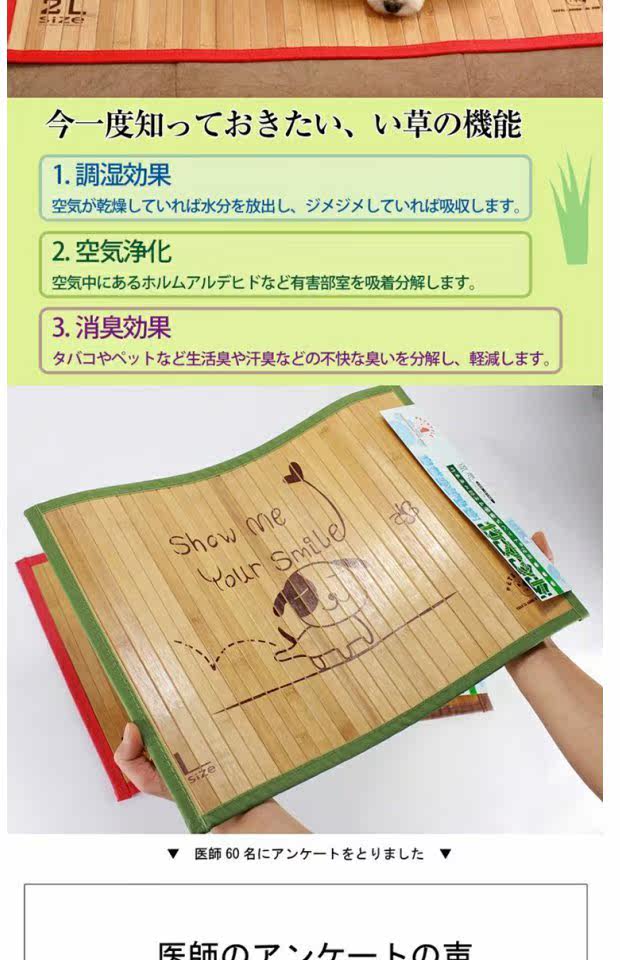 2L
size
今一度知っておきたい、い草の機能
1. 調湿効果
空気が乾燥していれば水分を放出し、ジメジメしていれば吸収します。
2. 空気浄化
空気中にあるホルムアルデヒドなど有害部室を吸着分解します。
3. 消臭効果
タバコやペットなど生活臭や汗臭などの不快な臭いを分解し、軽減します。
Show Me
Your Smile
L
size
▼ 医師60名にアンケートをとりました ▼
医師のアンケートの声